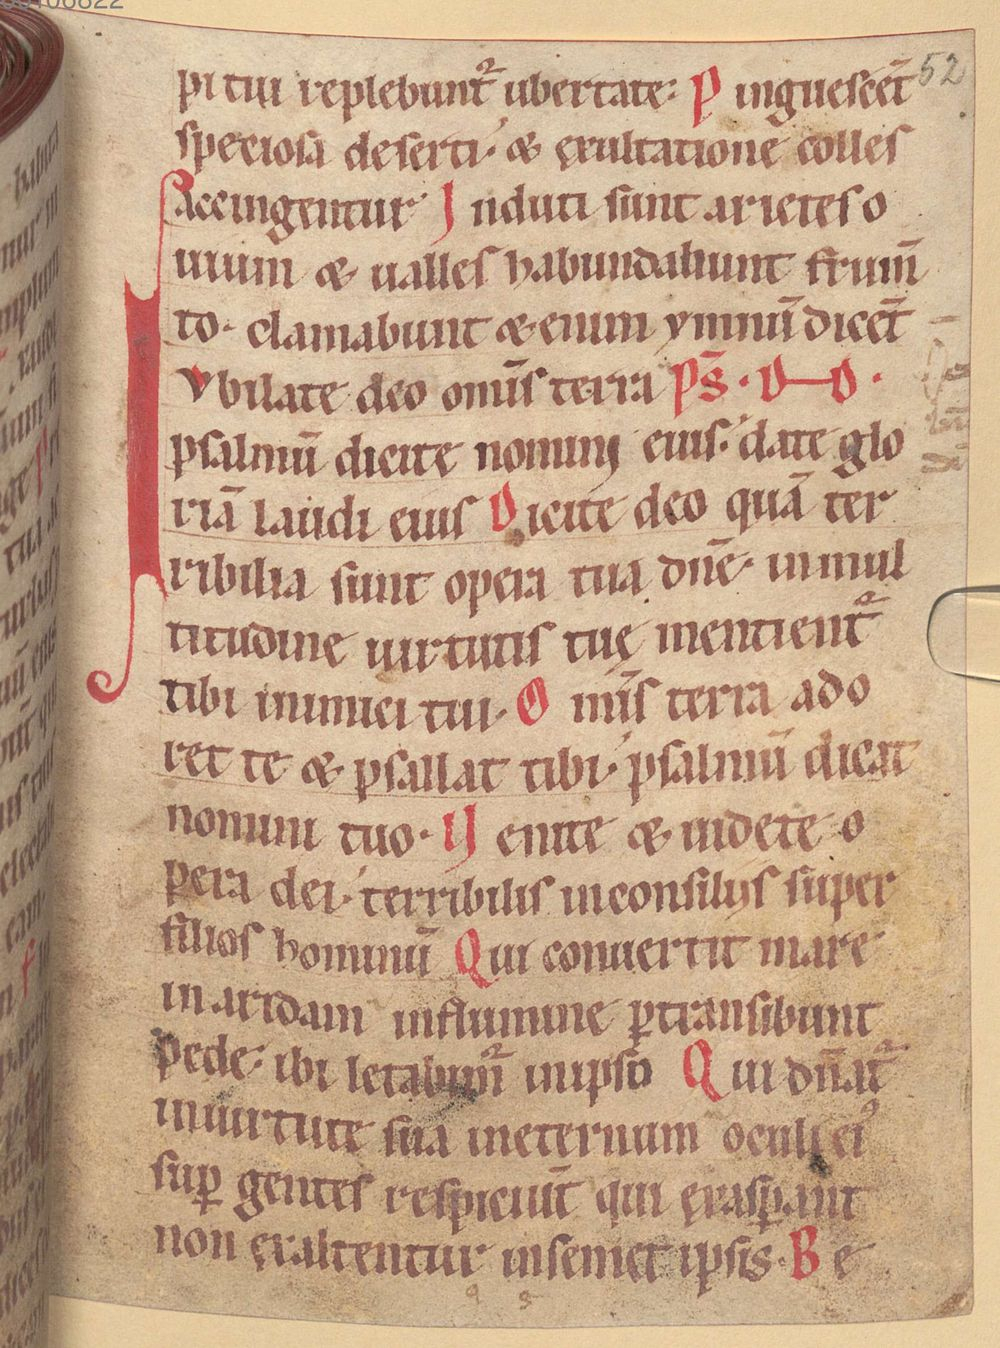 52
pi tui replebunt᷑ ubertate· P inguescēt
speciosa deserti· & exultatione colles
Accingentur I nduti sunt arietes o
uium & ualles habundabunt frum̄
to· clamabunt & enim ymnū dicēt
Iubilate deo omīs terra ps̄· D D·
psalmū dicite nomini eius· date glo
riā laudi eius D icite deo quā ter
ribilia sunt opera tua dn̄e· in mul
titudine uirtutis tuę mentient᷑
tibi inimici tui· O mīs terra ado
ret te & psallat tibi· psalmū dicat
nomini tuo· U enite & uidete o
pera dei· terribilis in consilijs super
filios hominū Q ui conuertit mare
in aridam in flumine ꝑtransibunt
pede· ibi letabim᷑ in ipso Q ui dn̄at᷑
in uirtute sua in eternum oculi eiꝰ
suꝑ gentes respiciūt qui exasꝑant
non exaltentur in semet ipsis· B e